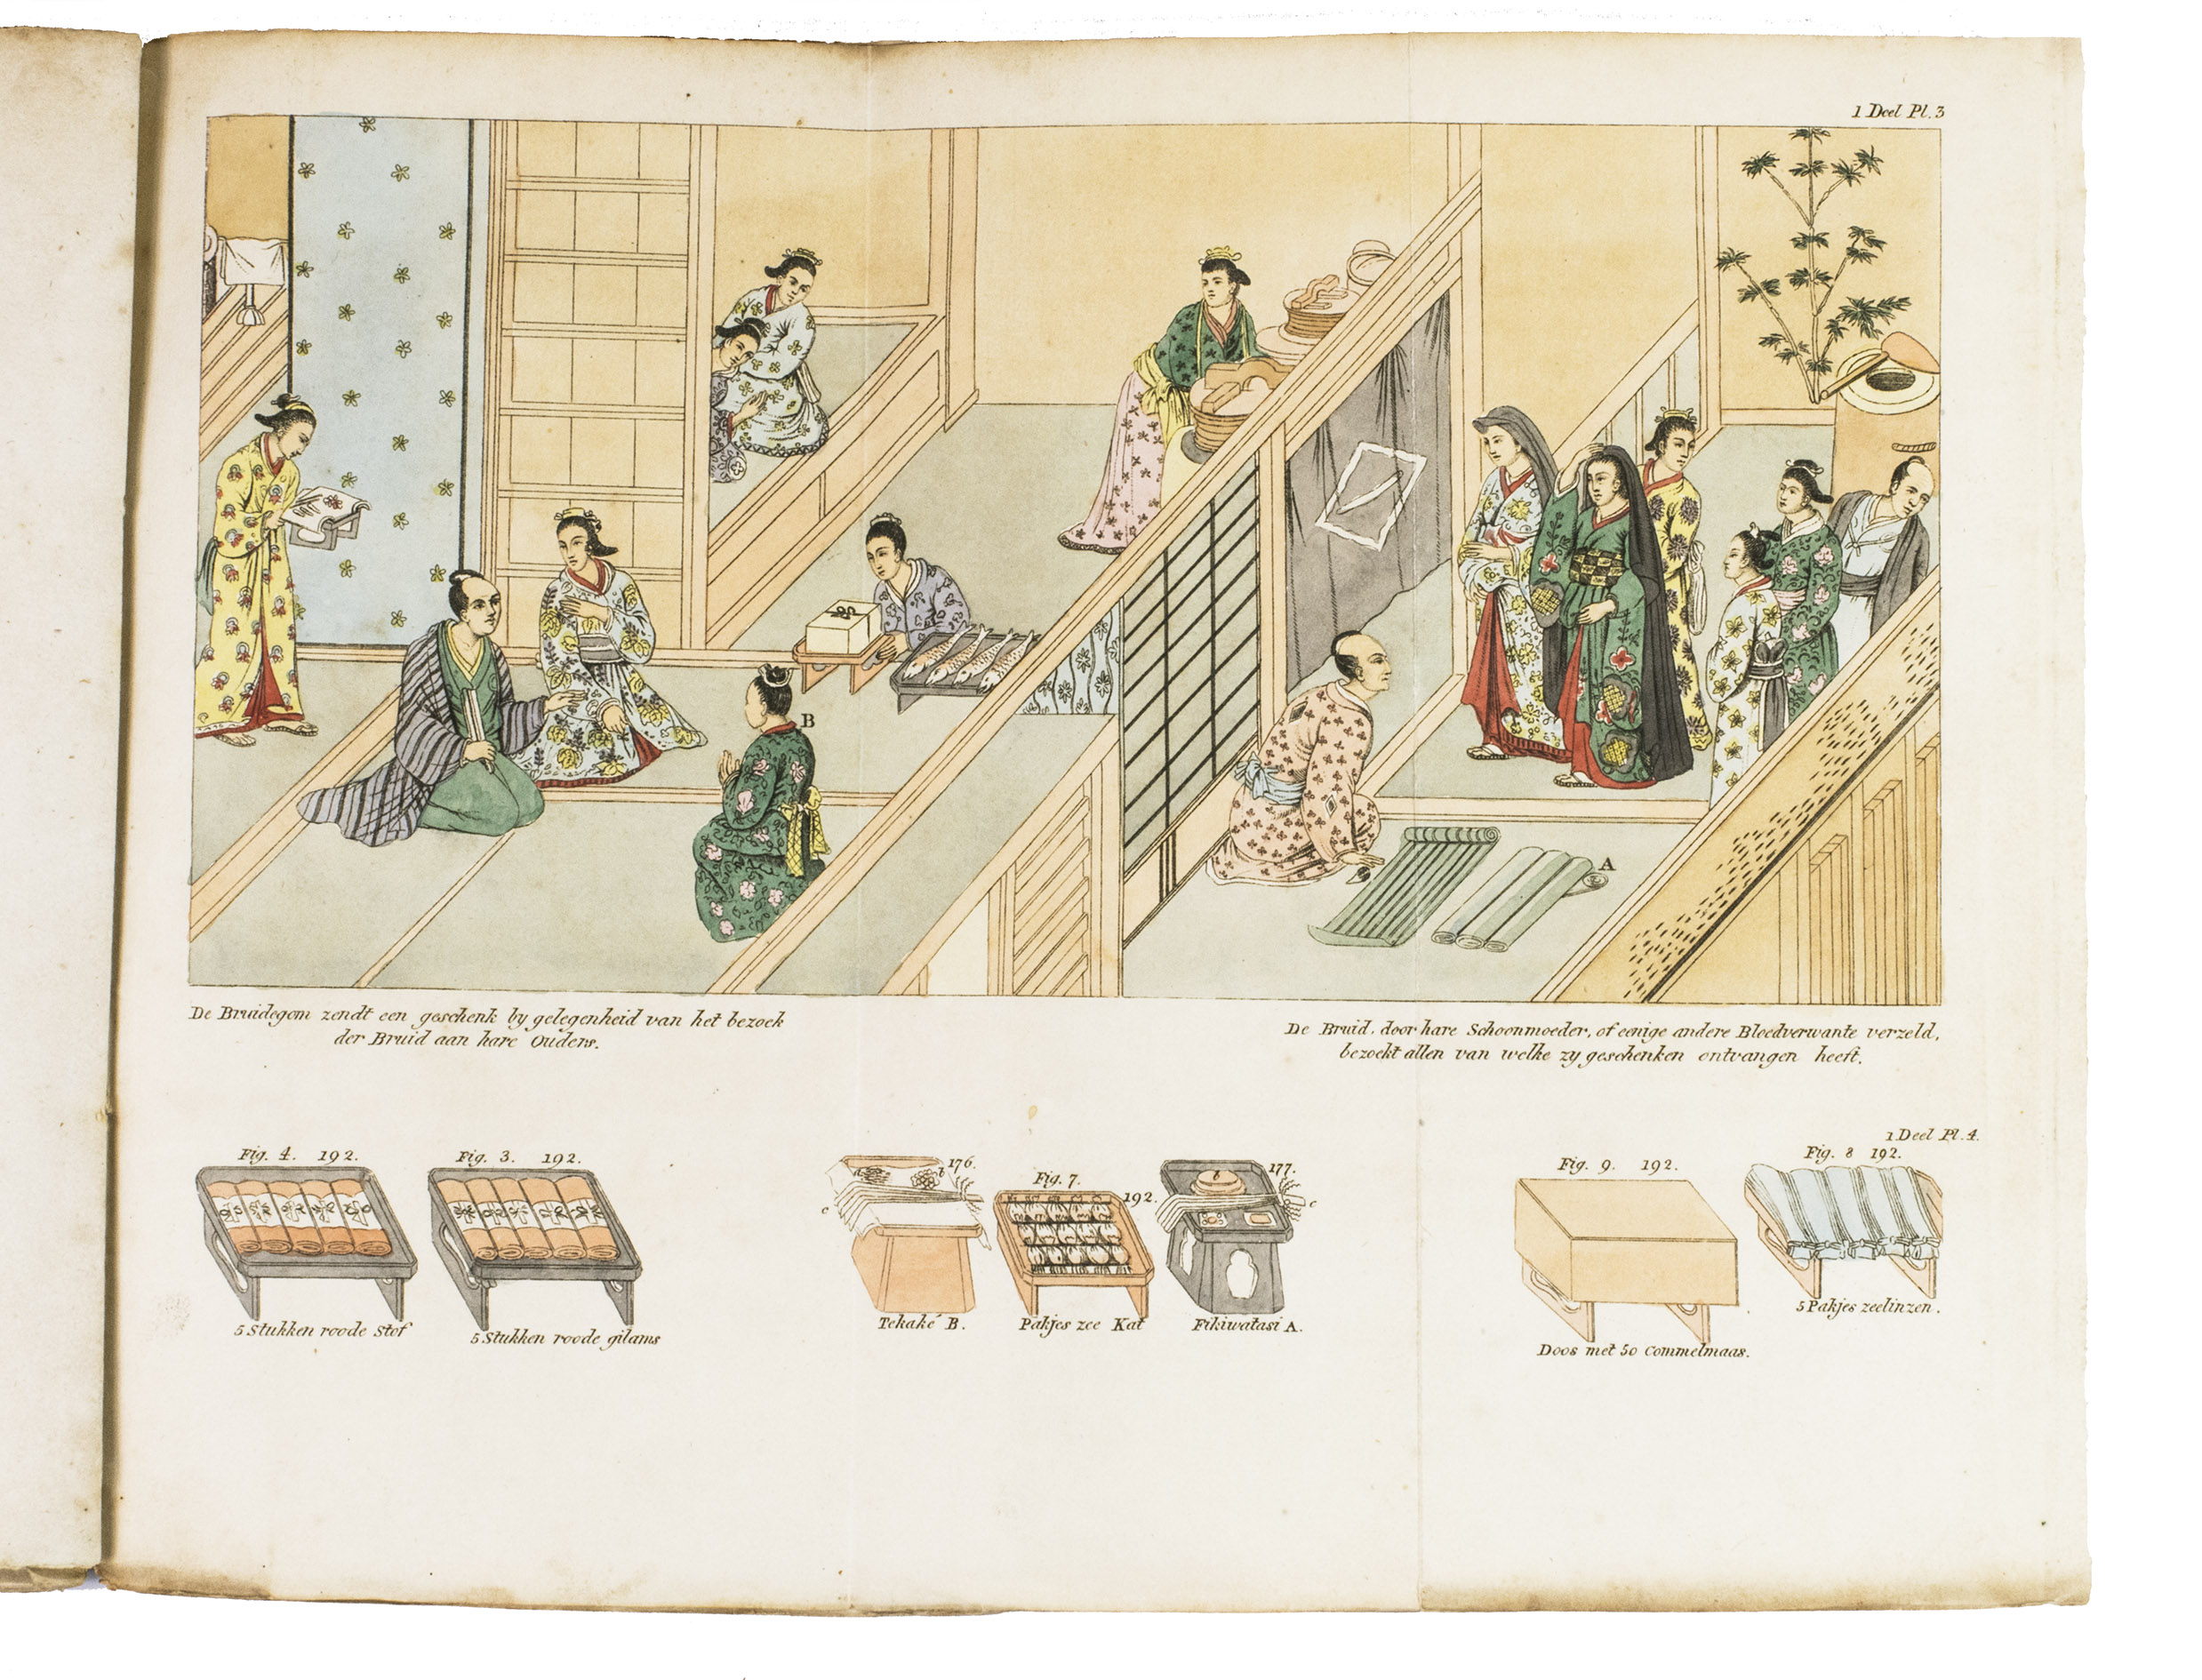 1 Deel Pl. 3
B
A
De Bruidegom zendt een geschenk by gelegenheid van het bezoek
der Bruid aan hare Ouders.
De Bruid, door hare Schoonmoeder, of eenige andere Bloedverwante verzeld,
bezoekt allen van welke zy geschenken ontvangen heeft.
1 Deel Pl. 4.
Fig. 4. 192.
5 Stukken roode Stof
Fig. 3. 192.
5 Stukken roode gilams
176.
a
b
c
Tekaké B.
Fig. 7.
192.
Pakjes zee Kat
177.
b
c
Fikiwatasi A.
Fig. 9. 192.
Doos met 50 Commelmaas.
Fig. 8 192.
5 Pakjes zeelinzen.